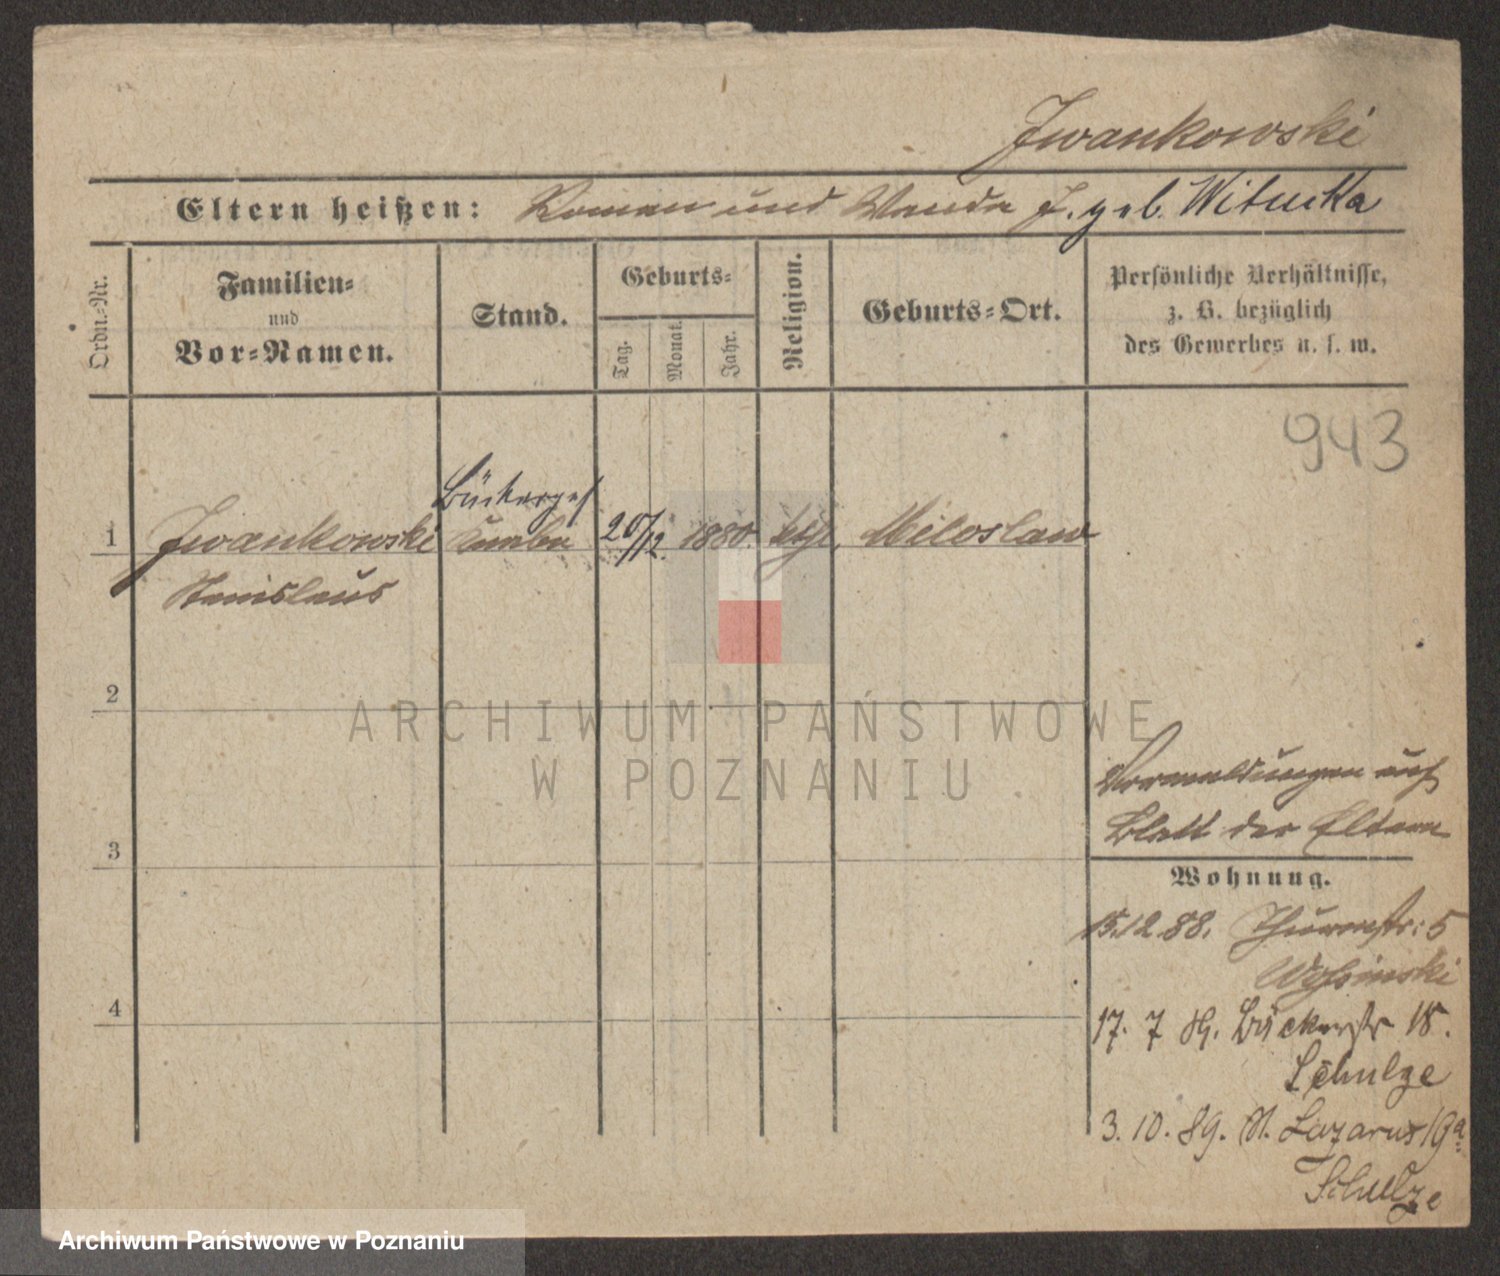 Iwankowski
Eltern heißen: Roman und Wanda J. geb. Witucka
Ordn.-Nr.
Familien=
und
Vor=Namen.
Stand.
Geburts=
Tag.
Monat.
Jahr.
Religion.
Geburts=Ort.
Persönliche Verhältnisse,
z. B. bezüglich
des Gewerbes u. s. w.
943
Bäckerges
1 Iwankowski 20/12. 1880. kth. Miloslaw
Stanislaus
2
ARCHIWUM PAŃSTWOWE
W POZNANIU
Vermeldungen auf
Blatt der Eltern
3
Wohnung.
15.12.88. Thurmstr: 5
4
17. 7 89. Bäckerstr 15.
Schulze
3. 10. 89. St. Lazarus 19a
Schulze
Archiwum Państwowe w Poznaniu